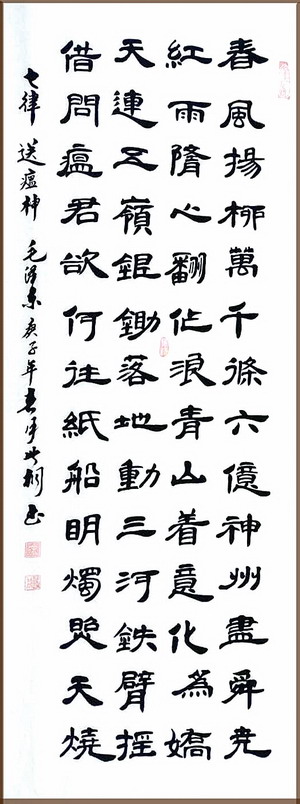 春風揚柳萬千條六億神州盡舜堯
紅雨隨心翻作浪青山着意化為嬌
天連五嶺銀鋤落地動三河鉄臂摇
借問瘟君欲何往紙船明燭照天燒
七律 送瘟神 毛澤東 庚子年春月 书